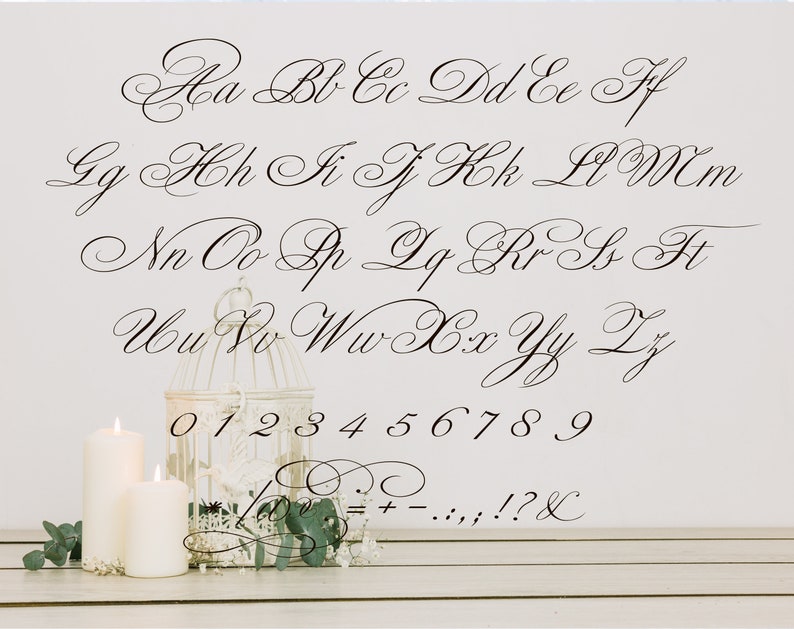 Aa Bb Cc Dd Ee Ff
Gg Hh Ii Jj Kk Ll Mm
Nn Oo Pp Qq Rr Ss Tt
Uu Vv Ww Xx Yy Zz
0 1 2 3 4 5 6 7 8 9
* / @ = + - . : , ; ! ? &